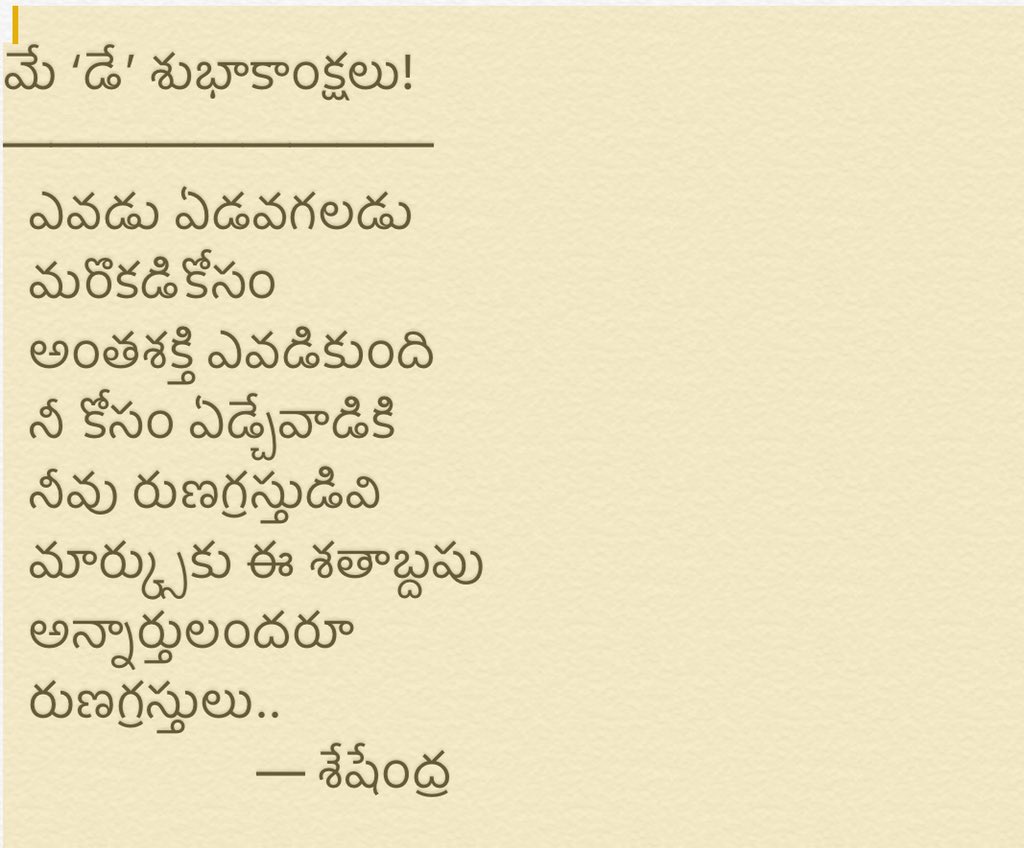 మే ‘డే’ శుభాకాంక్షలు!
ఎవడు ఏడవగలడు
మరొకడికోసం
అంతశక్తి ఎవడికుంది
నీ కోసం ఏడ్చేవాడికి
నీవు రుణగ్రస్తుడివి
మార్క్సుకు ఈ శతాబ్దపు
అన్నార్తులందరూ
రుణగ్రస్తులు..
— శేషేంద్ర